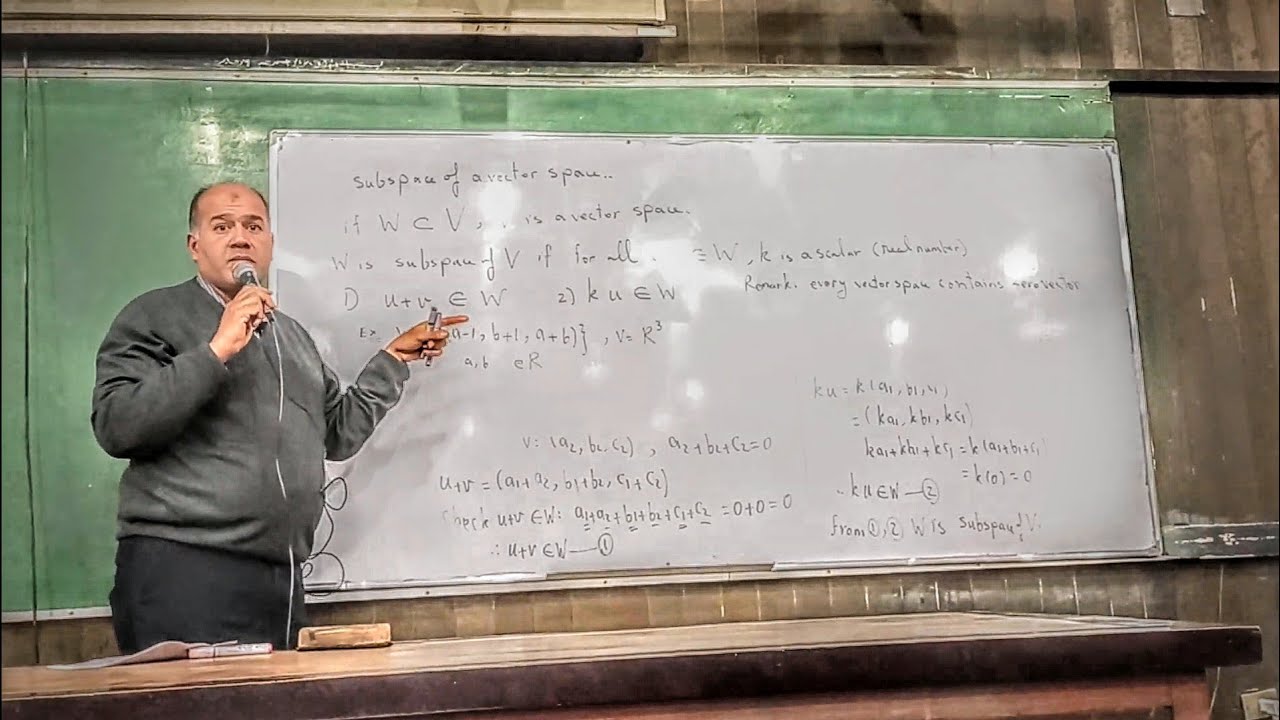 subspace of a vector space..
if W ⊂ V, is a vector space.
W is subspace of V if for all ∈ W, k is a scalar (real number)
1) u+v ∈ W 2) k u ∈ W
Remark. every vector space contains zero vector
Ex. a-1, b+1, a+b)}, V = R³
a, b ∈ R
v = (a₂, b₂, c₂), a₂+b₂+c₂=0
u+v = (a₁+a₂, b₁+b₂, c₁+c₂)
Check u+v ∈ W: a₁+a₂+b₁+b₂+c₁+c₂ = 0+0=0
∴ u+v ∈ W — ①
ku = k(a₁, b₁, c₁)
= (ka₁, kb₁, kc₁)
ka₁+kb₁+kc₁ = k(a₁+b₁+c₁)
= k(0) = 0
∴ ku ∈ W — ②
from ①, ② W is subspace of V.